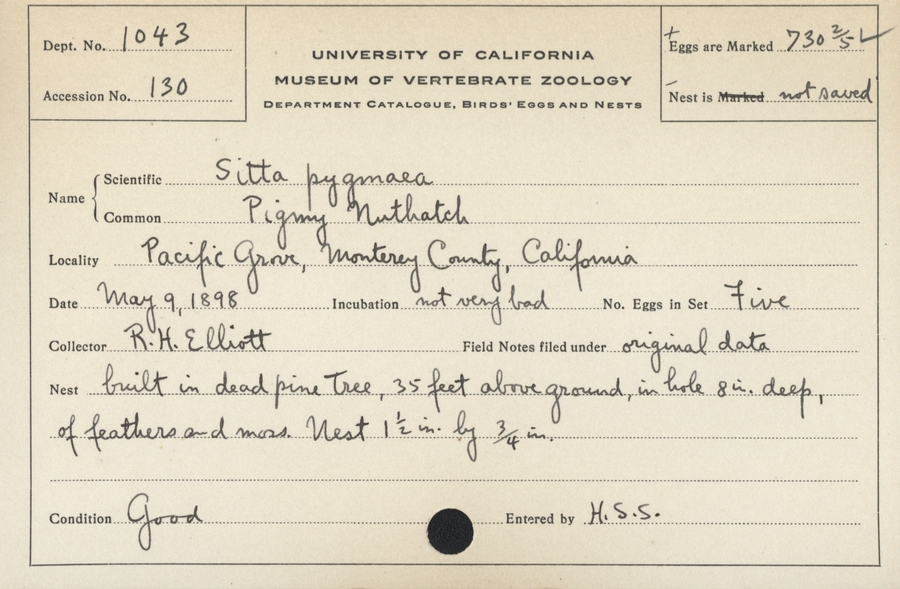 Dept. No. 1043
Accession No. 130
UNIVERSITY OF CALIFORNIA
MUSEUM OF VERTEBRATE ZOOLOGY
DEPARTMENT CATALOGUE, BIRDS' EGGS AND NESTS
+ Eggs are Marked 730 2/5 ✓
– Nest is Marked not saved
Name { Scientific Sitta pygmaea
Common Pigmy Nuthatch
Locality Pacific Grove, Monterey County, California
Date May 9, 1898 Incubation not very bad No. Eggs in Set Five
Collector R.H. Elliott Field Notes filed under original data
Nest built in dead pine tree, 35 feet above ground, in hole 8 in. deep,
of feathers and moss. Nest 1 1/2 in. by 3/4 in.
Condition Good Entered by H.S.S.